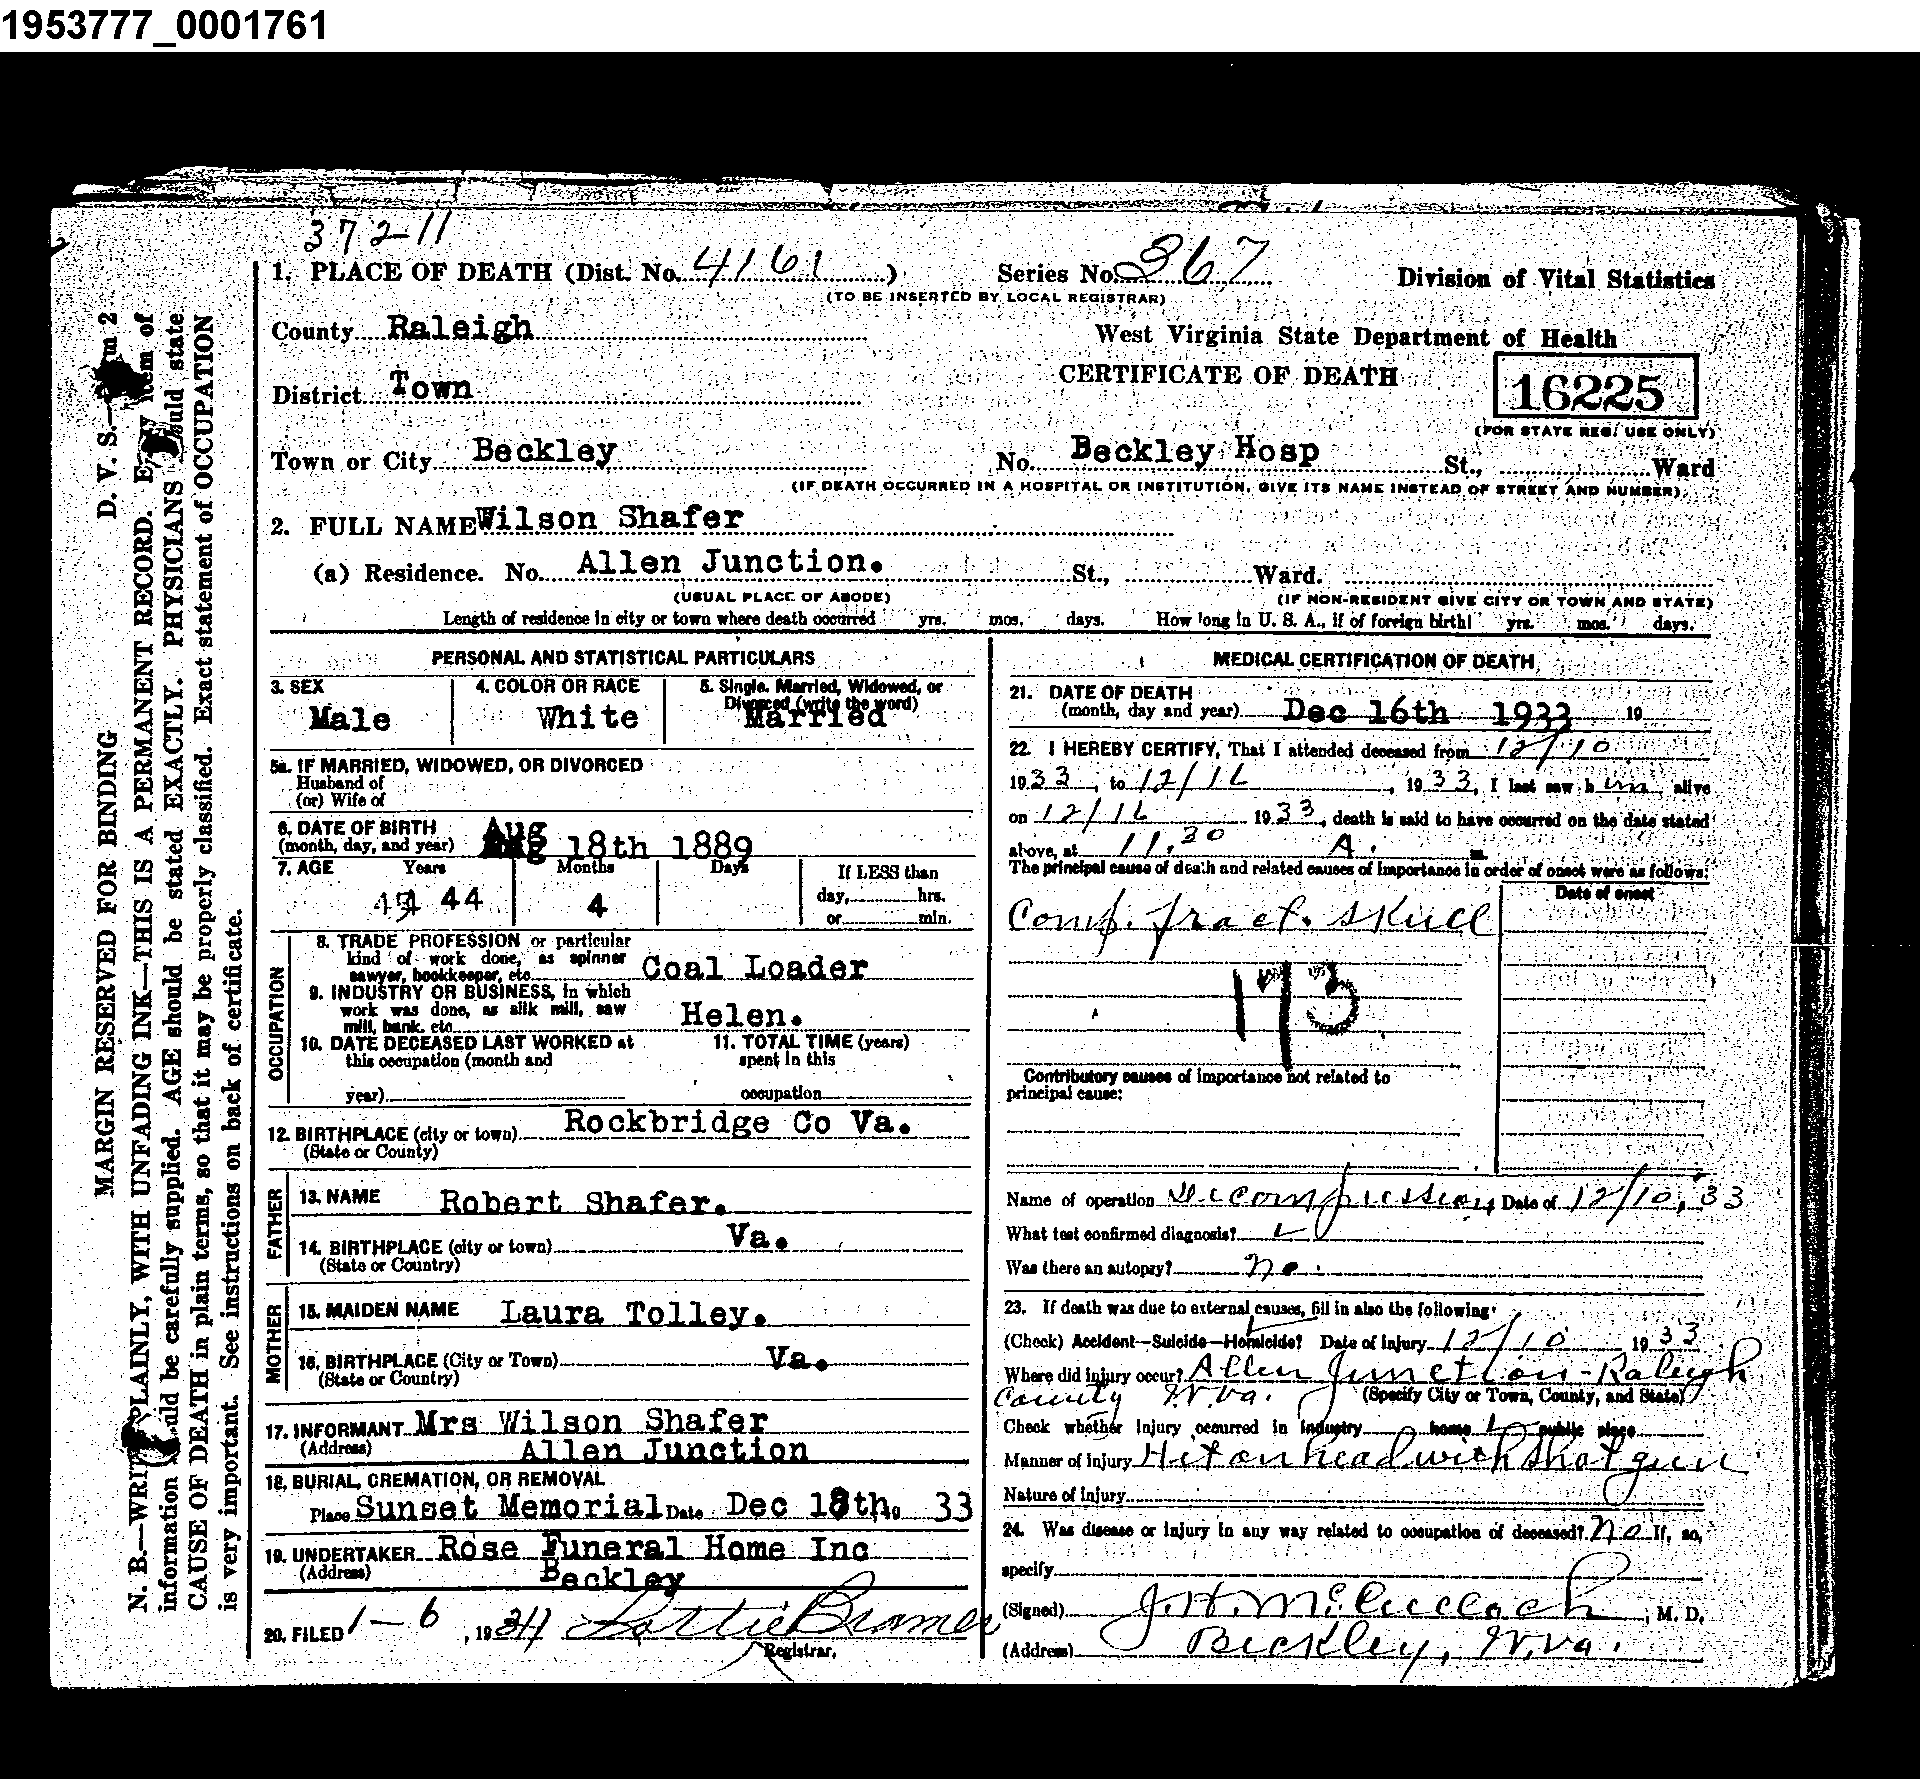 1953777_0001761
372-11
1. PLACE OF DEATH (Dist. No. 4161 ) Series No. 367 Division of Vital Statistics
(TO BE INSERTED BY LOCAL REGISTRAR)
County Raleigh West Virginia State Department of Health
District Town CERTIFICATE OF DEATH 16225
(FOR STATE REG. USE ONLY)
Town or City Beckley No. Beckley Hosp St., Ward
(IF DEATH OCCURRED IN A HOSPITAL OR INSTITUTION, GIVE ITS NAME INSTEAD OF STREET AND NUMBER)
2. FULL NAME Wilson Shafer
(a) Residence. No. Allen Junction. St., Ward.
(USUAL PLACE OF ABODE) (IF NON-RESIDENT GIVE CITY OR TOWN AND STATE)
Length of residence in city or town where death occurred yrs. mos. days. How long in U. S. A., if of foreign birth! yrs. mos. days.
PERSONAL AND STATISTICAL PARTICULARS
3. SEX 4. COLOR OR RACE 5. Single, Married, Widowed, or
Divorced (write the word)
Male White Married
5a. IF MARRIED, WIDOWED, OR DIVORCED
Husband of
(or) Wife of
6. DATE OF BIRTH Aug
(month, day, and year) Aug 18th 1889
7. AGE Years Months Days If LESS than
44 4 day, hrs.
or min.
OCCUPATION
8. TRADE PROFESSION or particular
kind of work done, as spinner
sawyer, bookkeeper, etc. Coal Loader
9. INDUSTRY OR BUSINESS, in which
work was done, as silk mill, saw
mill, bank, etc. Helen.
10. DATE DECEASED LAST WORKED at 11. TOTAL TIME (years)
this occupation (month and spent in this
year) occupation
12. BIRTHPLACE (city or town) Rockbridge Co Va.
(State or County)
FATHER
13. NAME Robert Shafer.
14. BIRTHPLACE (city or town) Va.
(State or Country)
MOTHER
15. MAIDEN NAME Laura Tolley.
16. BIRTHPLACE (City or Town) Va.
(State or Country)
17. INFORMANT Mrs Wilson Shafer
(Address) Allen Junction
18. BURIAL, CREMATION, OR REMOVAL
Place Sunset Memorial Date Dec 18th, 19 33
19. UNDERTAKER Rose Funeral Home Inc
(Address) Beckley
20. FILED 1-6, 1934 Lottie Bramer
Registrar.
MEDICAL CERTIFICATION OF DEATH
21. DATE OF DEATH
(month, day and year) Dec 16th 1933 19
22. I HEREBY CERTIFY, That I attended deceased from 12/10
1933, to 12/16, 1933, I last saw him alive
on 12/16 1933, death is said to have occurred on the date stated
above, at 11.30 A. m.
The principal cause of death and related causes of importance in order of onset were as follows:
Date of onset
Comp. fract. skull
173
Contributory causes of importance not related to
principal cause:
Name of operation Decompression, Date of 12/10, 33
What test confirmed diagnosis?
Was there an autopsy? no.
23. If death was due to external causes, fill in also the following:
(Check) Accident—Suicide—Homicide? Date of injury 12/10 1933
Where did injury occur? Allen Junction - Raleigh
County W.Va. (Specify City or Town, County, and State)
Check whether injury occurred in industry home public place
Manner of injury Hit on head with Shotgun
Nature of injury
24. Was disease or injury in any way related to occupation of deceased? no If, so,
specify
(Signed) J.H. McCulloch, M. D.
(Address) Beckley, W.Va.
MARGIN RESERVED FOR BINDING D. V. S.— m 2
N. B.—WRITE PLAINLY, WITH UNFADING INK—THIS IS A PERMANENT RECORD. Every item of
information should be carefully supplied. AGE should be stated EXACTLY. PHYSICIANS should state
CAUSE OF DEATH in plain terms, so that it may be properly classified. Exact statement of OCCUPATION
is very important. See instructions on back of certificate.